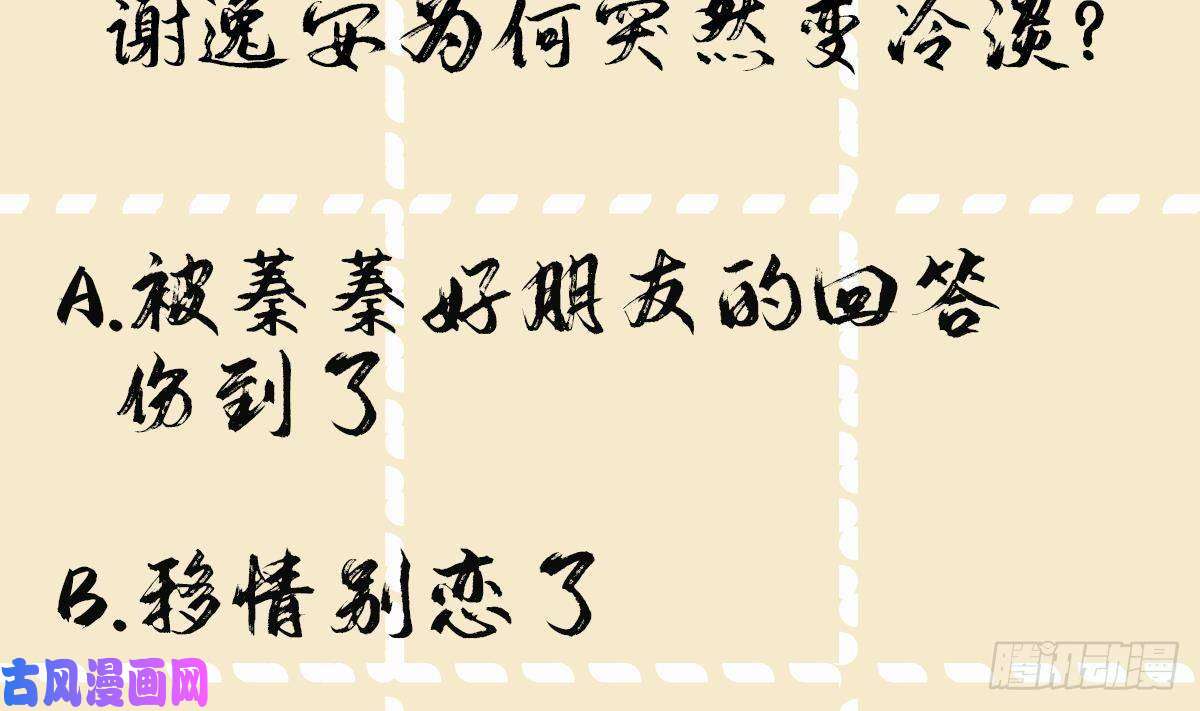 谢逸安为何突然变冷淡?
A.被蓁蓁好朋友的回答
伤到了
B.移情别恋了
古风漫画网
腾讯动漫